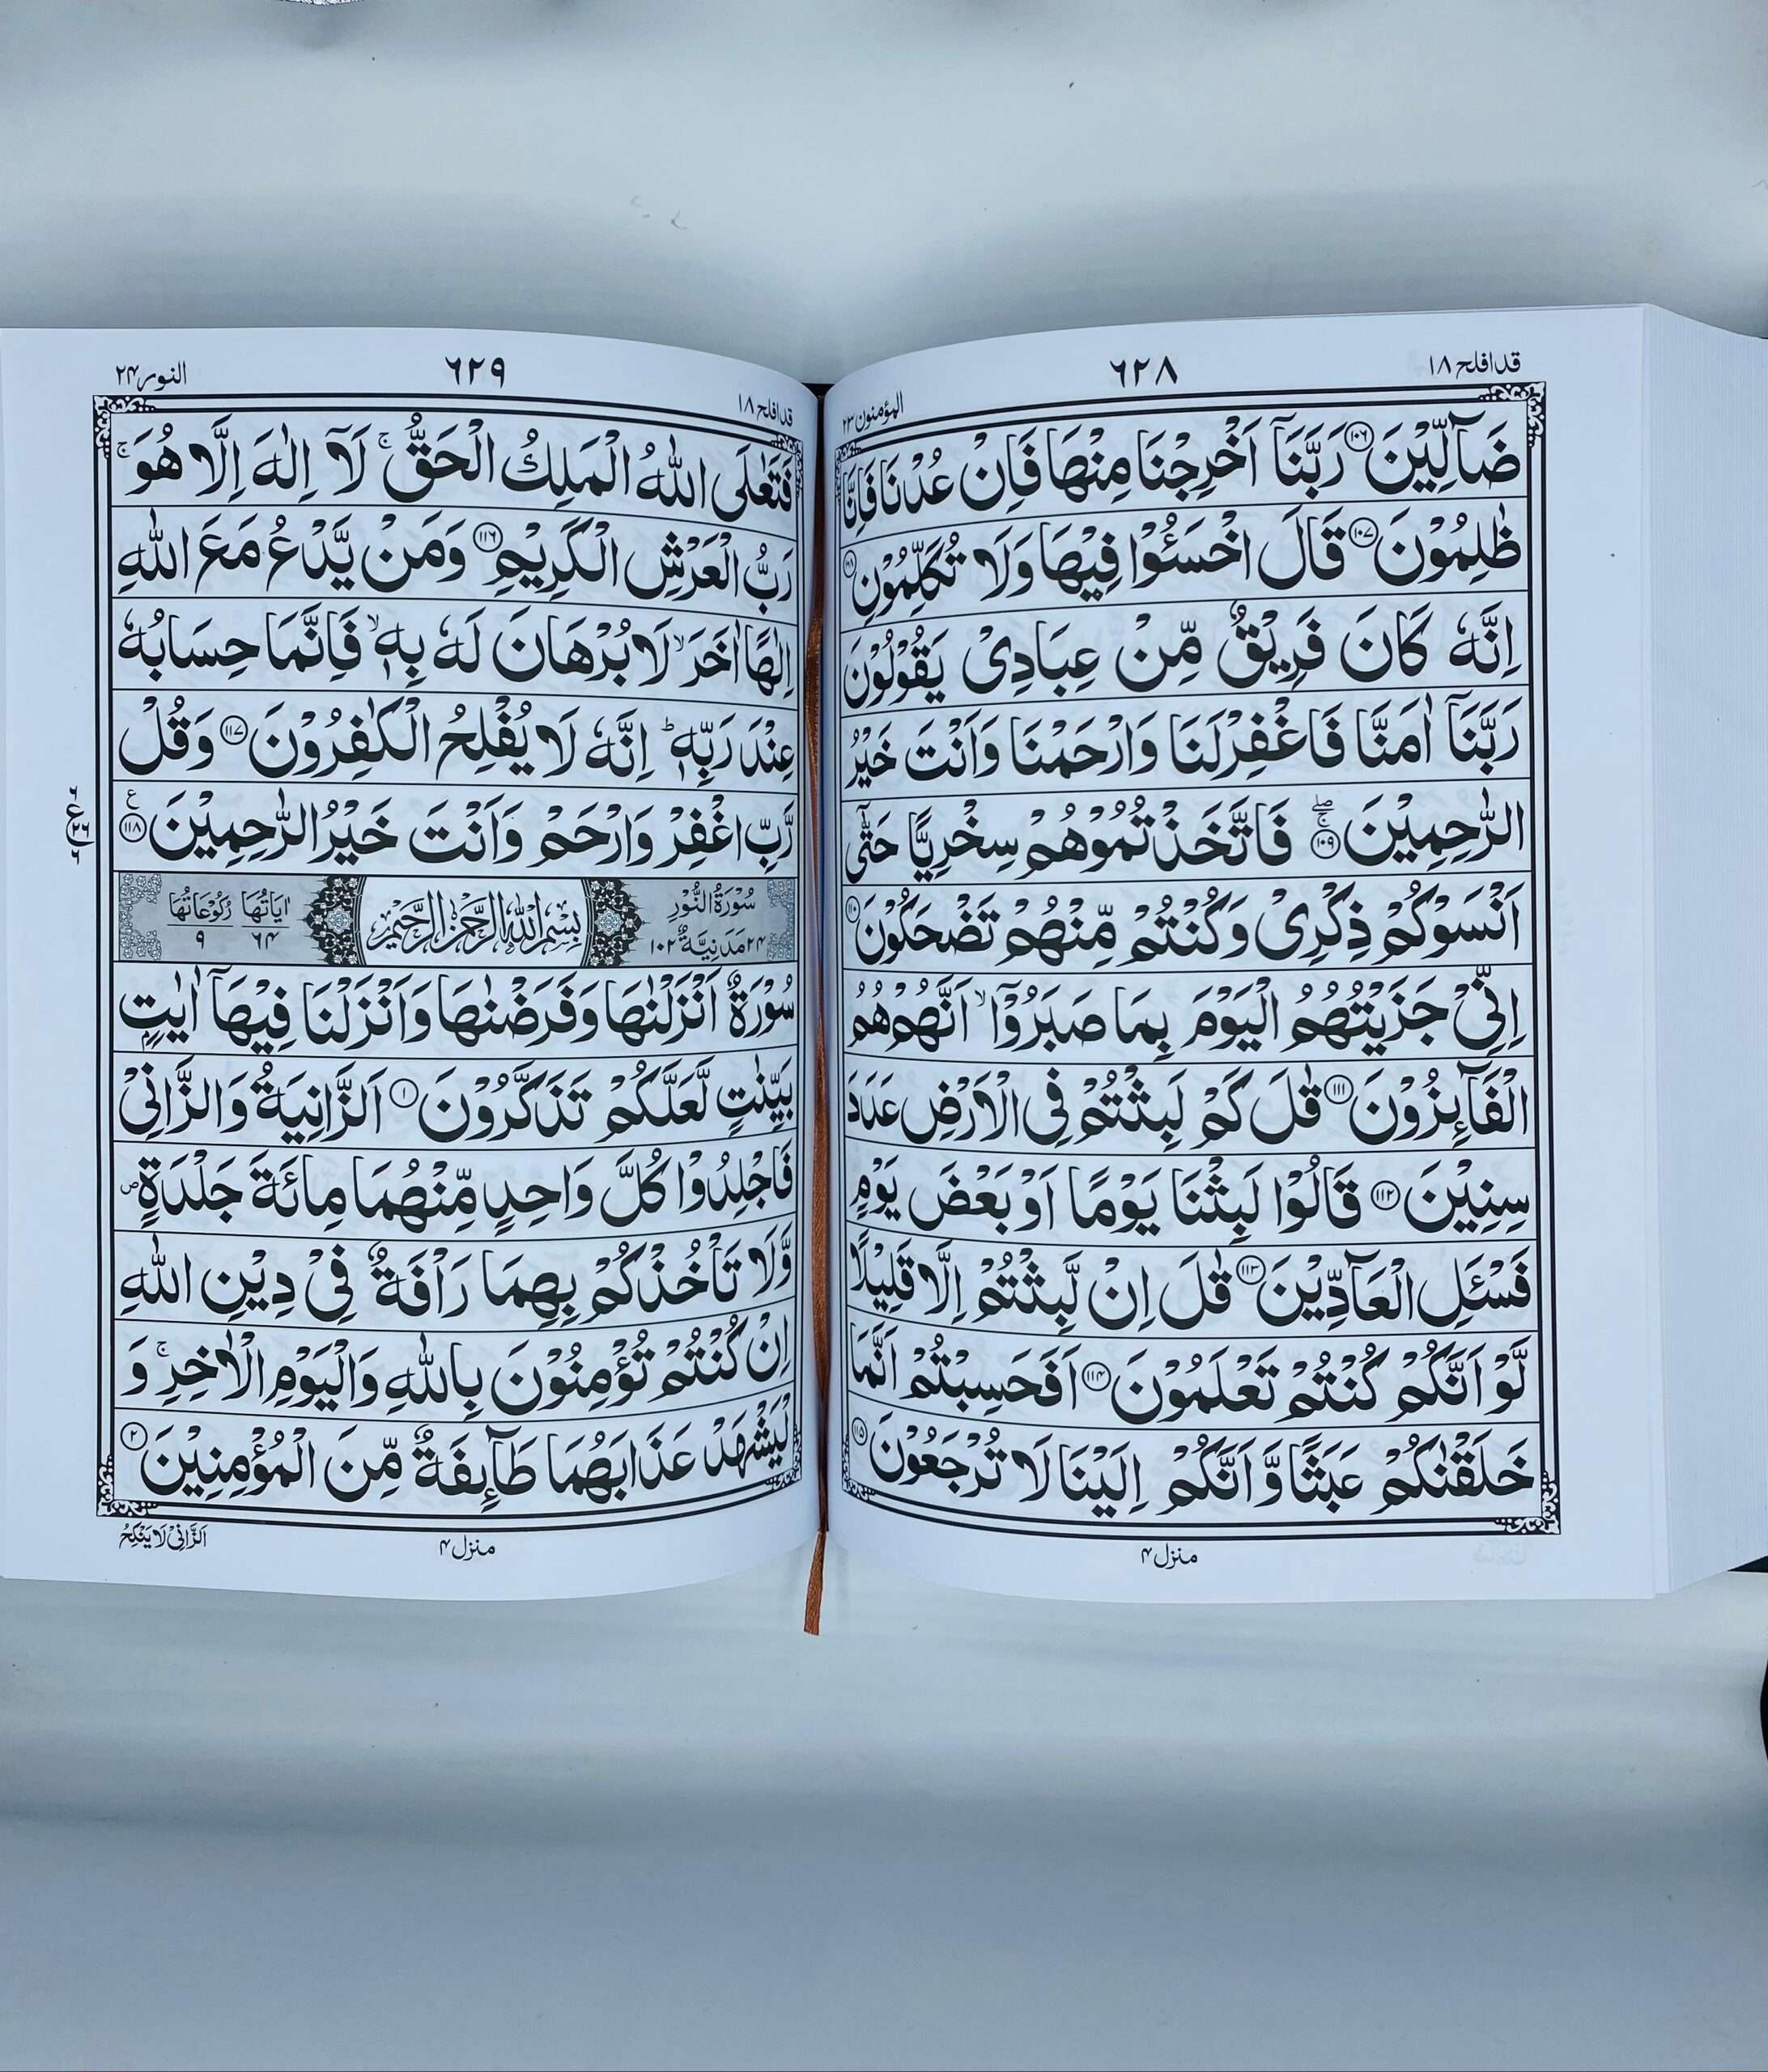 قد افلح ١٨
٦٢٨
المؤمنون ٢٣
ضَآلِّیْنَ ۝١٠٦ رَبَّنَاۤ اَخْرِجْنَا مِنْهَا فَاِنْ عُدْنَا فَاِنَّا
ظٰلِمُوْنَ ۝١٠٧ قَالَ اخْسَـُٔوْا فِیْهَا وَلَا تُكَلِّمُوْنِ ۝١٠٨
اِنَّهٗ كَانَ فَرِیْقٌ مِّنْ عِبَادِیْ یَقُوْلُوْنَ
رَبَّنَاۤ اٰمَنَّا فَاغْفِرْلَنَا وَارْحَمْنَا وَاَنْتَ خَیْرُ
الرّٰحِمِیْنَ ۝١٠٩ۚۖ فَاتَّخَذْتُمُوْهُمْ سِخْرِیًّا حَتّٰۤی
اَنْسَوْكُمْ ذِكْرِیْ وَكُنْتُمْ مِّنْهُمْ تَضْحَكُوْنَ ۝١١٠
اِنِّیْ جَزَیْتُهُمُ الْیَوْمَ بِمَا صَبَرُوْۤا ۙ اَنَّهُمْ هُمُ
الْفَآىِٕزُوْنَ ۝١١١ قٰلَ كَمْ لَبِثْتُمْ فِی الْاَرْضِ عَدَدَ
سِنِیْنَ ۝١١٢ قَالُوْا لَبِثْنَا یَوْمًا اَوْ بَعْضَ یَوْمٍ
فَسْـَٔلِ الْعَآدِّیْنَ ۝١١٣ قٰلَ اِنْ لَّبِثْتُمْ اِلَّا قَلِیْلًا
لَّوْ اَنَّكُمْ كُنْتُمْ تَعْلَمُوْنَ ۝١١٤ اَفَحَسِبْتُمْ اَنَّمَا
خَلَقْنٰكُمْ عَبَثًا وَّاَنَّكُمْ اِلَیْنَا لَا تُرْجَعُوْنَ ۝١١٥
منزل ٤
قد افلح ١٨
٦٢٩
النور ٢٤
فَتَعٰلَی اللّٰهُ الْمَلِكُ الْحَقُّ ۚ لَاۤ اِلٰهَ اِلَّا هُوَ ۚ
رَبُّ الْعَرْشِ الْكَرِیْمِ ۝١١٦ وَمَنْ یَّدْعُ مَعَ اللّٰهِ
اِلٰهًا اٰخَرَ ۙ لَا بُرْهَانَ لَهٗ بِهٖ ۙ فَاِنَّمَا حِسَابُهٗ
عِنْدَ رَبِّهٖ ؕ اِنَّهٗ لَا یُفْلِحُ الْكٰفِرُوْنَ ۝١١٧ وَقُلْ
رَّبِّ اغْفِرْ وَارْحَمْ وَاَنْتَ خَیْرُ الرّٰحِمِیْنَ ۝١١٨ ع
سُوْرَةُ النُّوْرِ
٢٤ مَدَنِیَّةٌ ١٠٢
بِسْمِ اللّٰهِ الرَّحْمٰنِ الرَّحِیْمِ
اٰیَاتُهَا ٦٤
رُكُوْعَاتُهَا ٩
سُوْرَةٌ اَنْزَلْنٰهَا وَفَرَضْنٰهَا وَاَنْزَلْنَا فِیْهَاۤ اٰیٰتٍۭ
بَیِّنٰتٍ لَّعَلَّكُمْ تَذَكَّرُوْنَ ۝١ اَلزَّانِیَةُ وَالزَّانِیْ
فَاجْلِدُوْا كُلَّ وَاحِدٍ مِّنْهُمَا مِائَةَ جَلْدَةٍ ۪
وَّلَا تَاْخُذْكُمْ بِهِمَا رَاْفَةٌ فِیْ دِیْنِ اللّٰهِ
اِنْ كُنْتُمْ تُؤْمِنُوْنَ بِاللّٰهِ وَالْیَوْمِ الْاٰخِرِ ۚ وَ
لْیَشْهَدْ عَذَابَهُمَا طَآىِٕفَةٌ مِّنَ الْمُؤْمِنِیْنَ ۝٢
منزل ٤
اَلزَّانِیْ لَا یَنْكِحُ